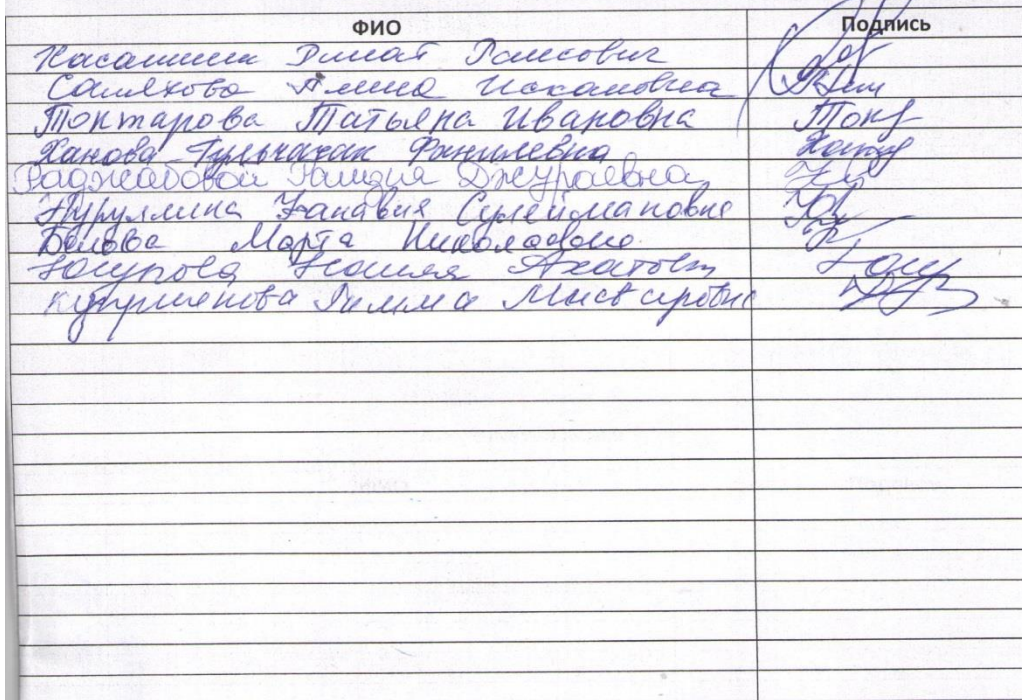 ФИО Подпись
Хасаншин Динат Раисович
Салахова Алина Исхаковна
Токтарова Татьяна Ивановна Токт
Ханова Гульчачак Фанилевна
Раджабовой Рашидя Джураевна
Нуруллина Занавия Сулеймановна
Белова Марта Николаевна
Юсупова Наиля Ахатовн
Куприянова Римма